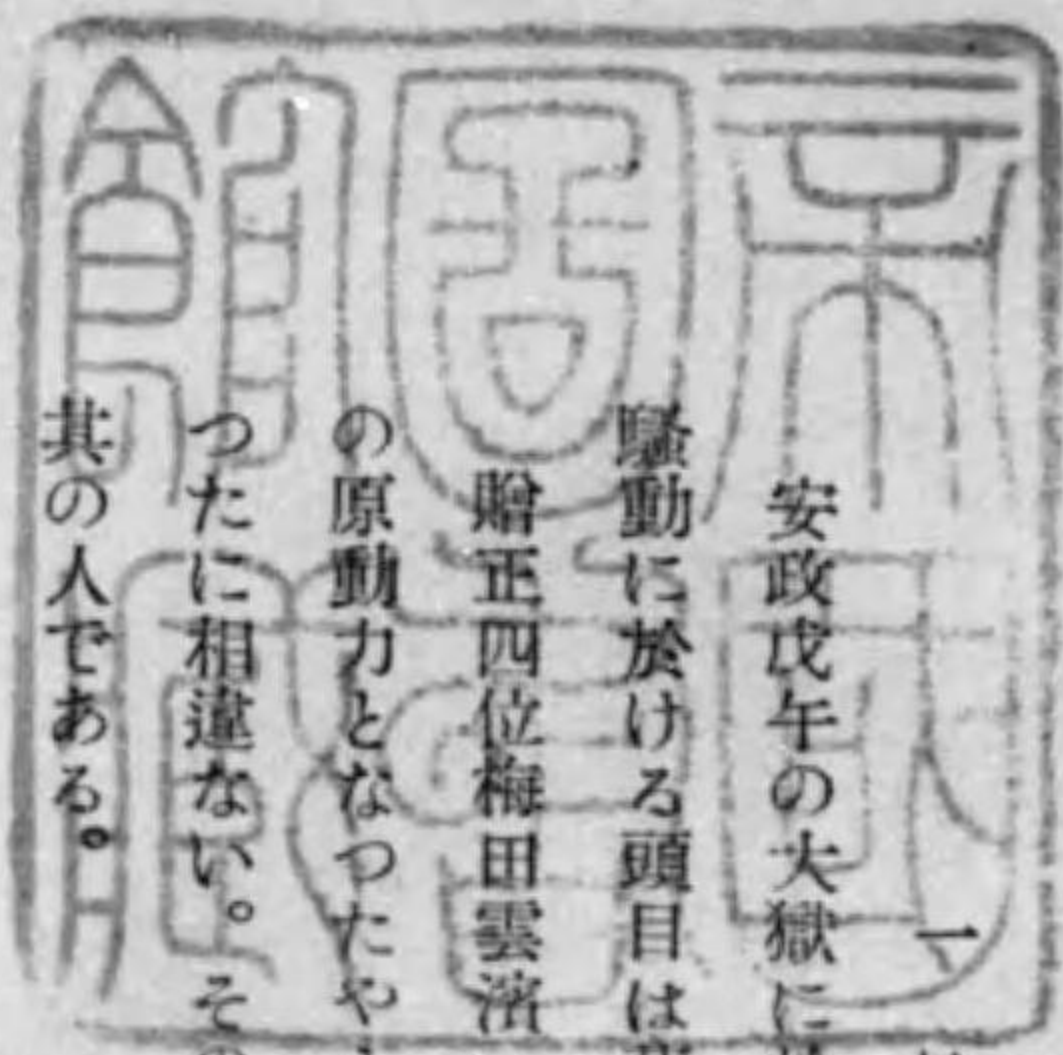 帝國
圖書
館藏
一
安政戊午の大獄に
騷動に於ける頭目は
贈正四位梅田雲濱
の原動力となつたや
つたに相違ない。その
其の人である。